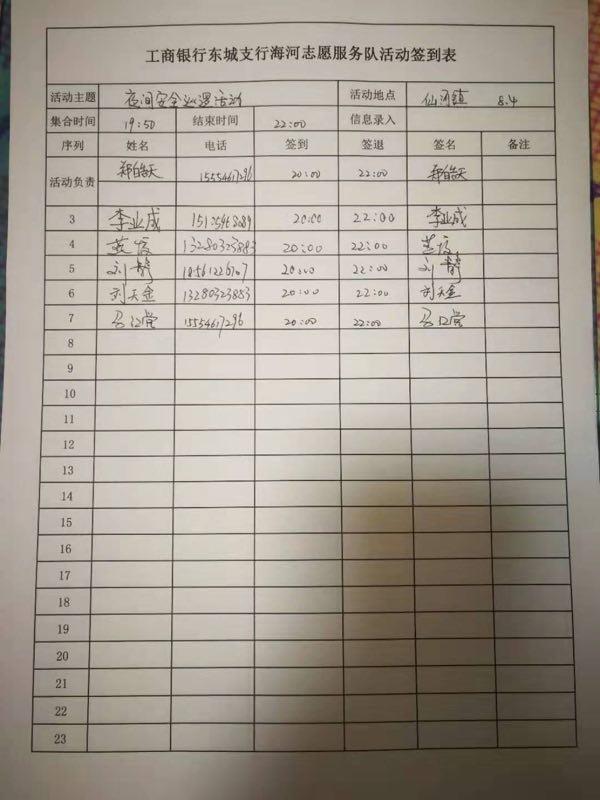 工商银行东城支行海河志愿服务队活动签到表
活动主题 夜间安全巡逻活动 活动地点 仙河镇 8.4
集合时间 19:50 结束时间 22:00 信息录入
序列 姓名 电话 签到 签退 签名 备注
活动负责 郑皓天 15554617296 20:00 22:00 郑皓天
3 李业成 20:00 22:00 李业成
4 13280323883 20:00 22:00
5 刘静 20:00 22:00 刘静
6 刘天金 13280323853 20:00 22:00 刘天金
7 15554617296 20:00 22:00
8
9
10
11
12
13
14
15
16
17
18
19
20
21
22
23